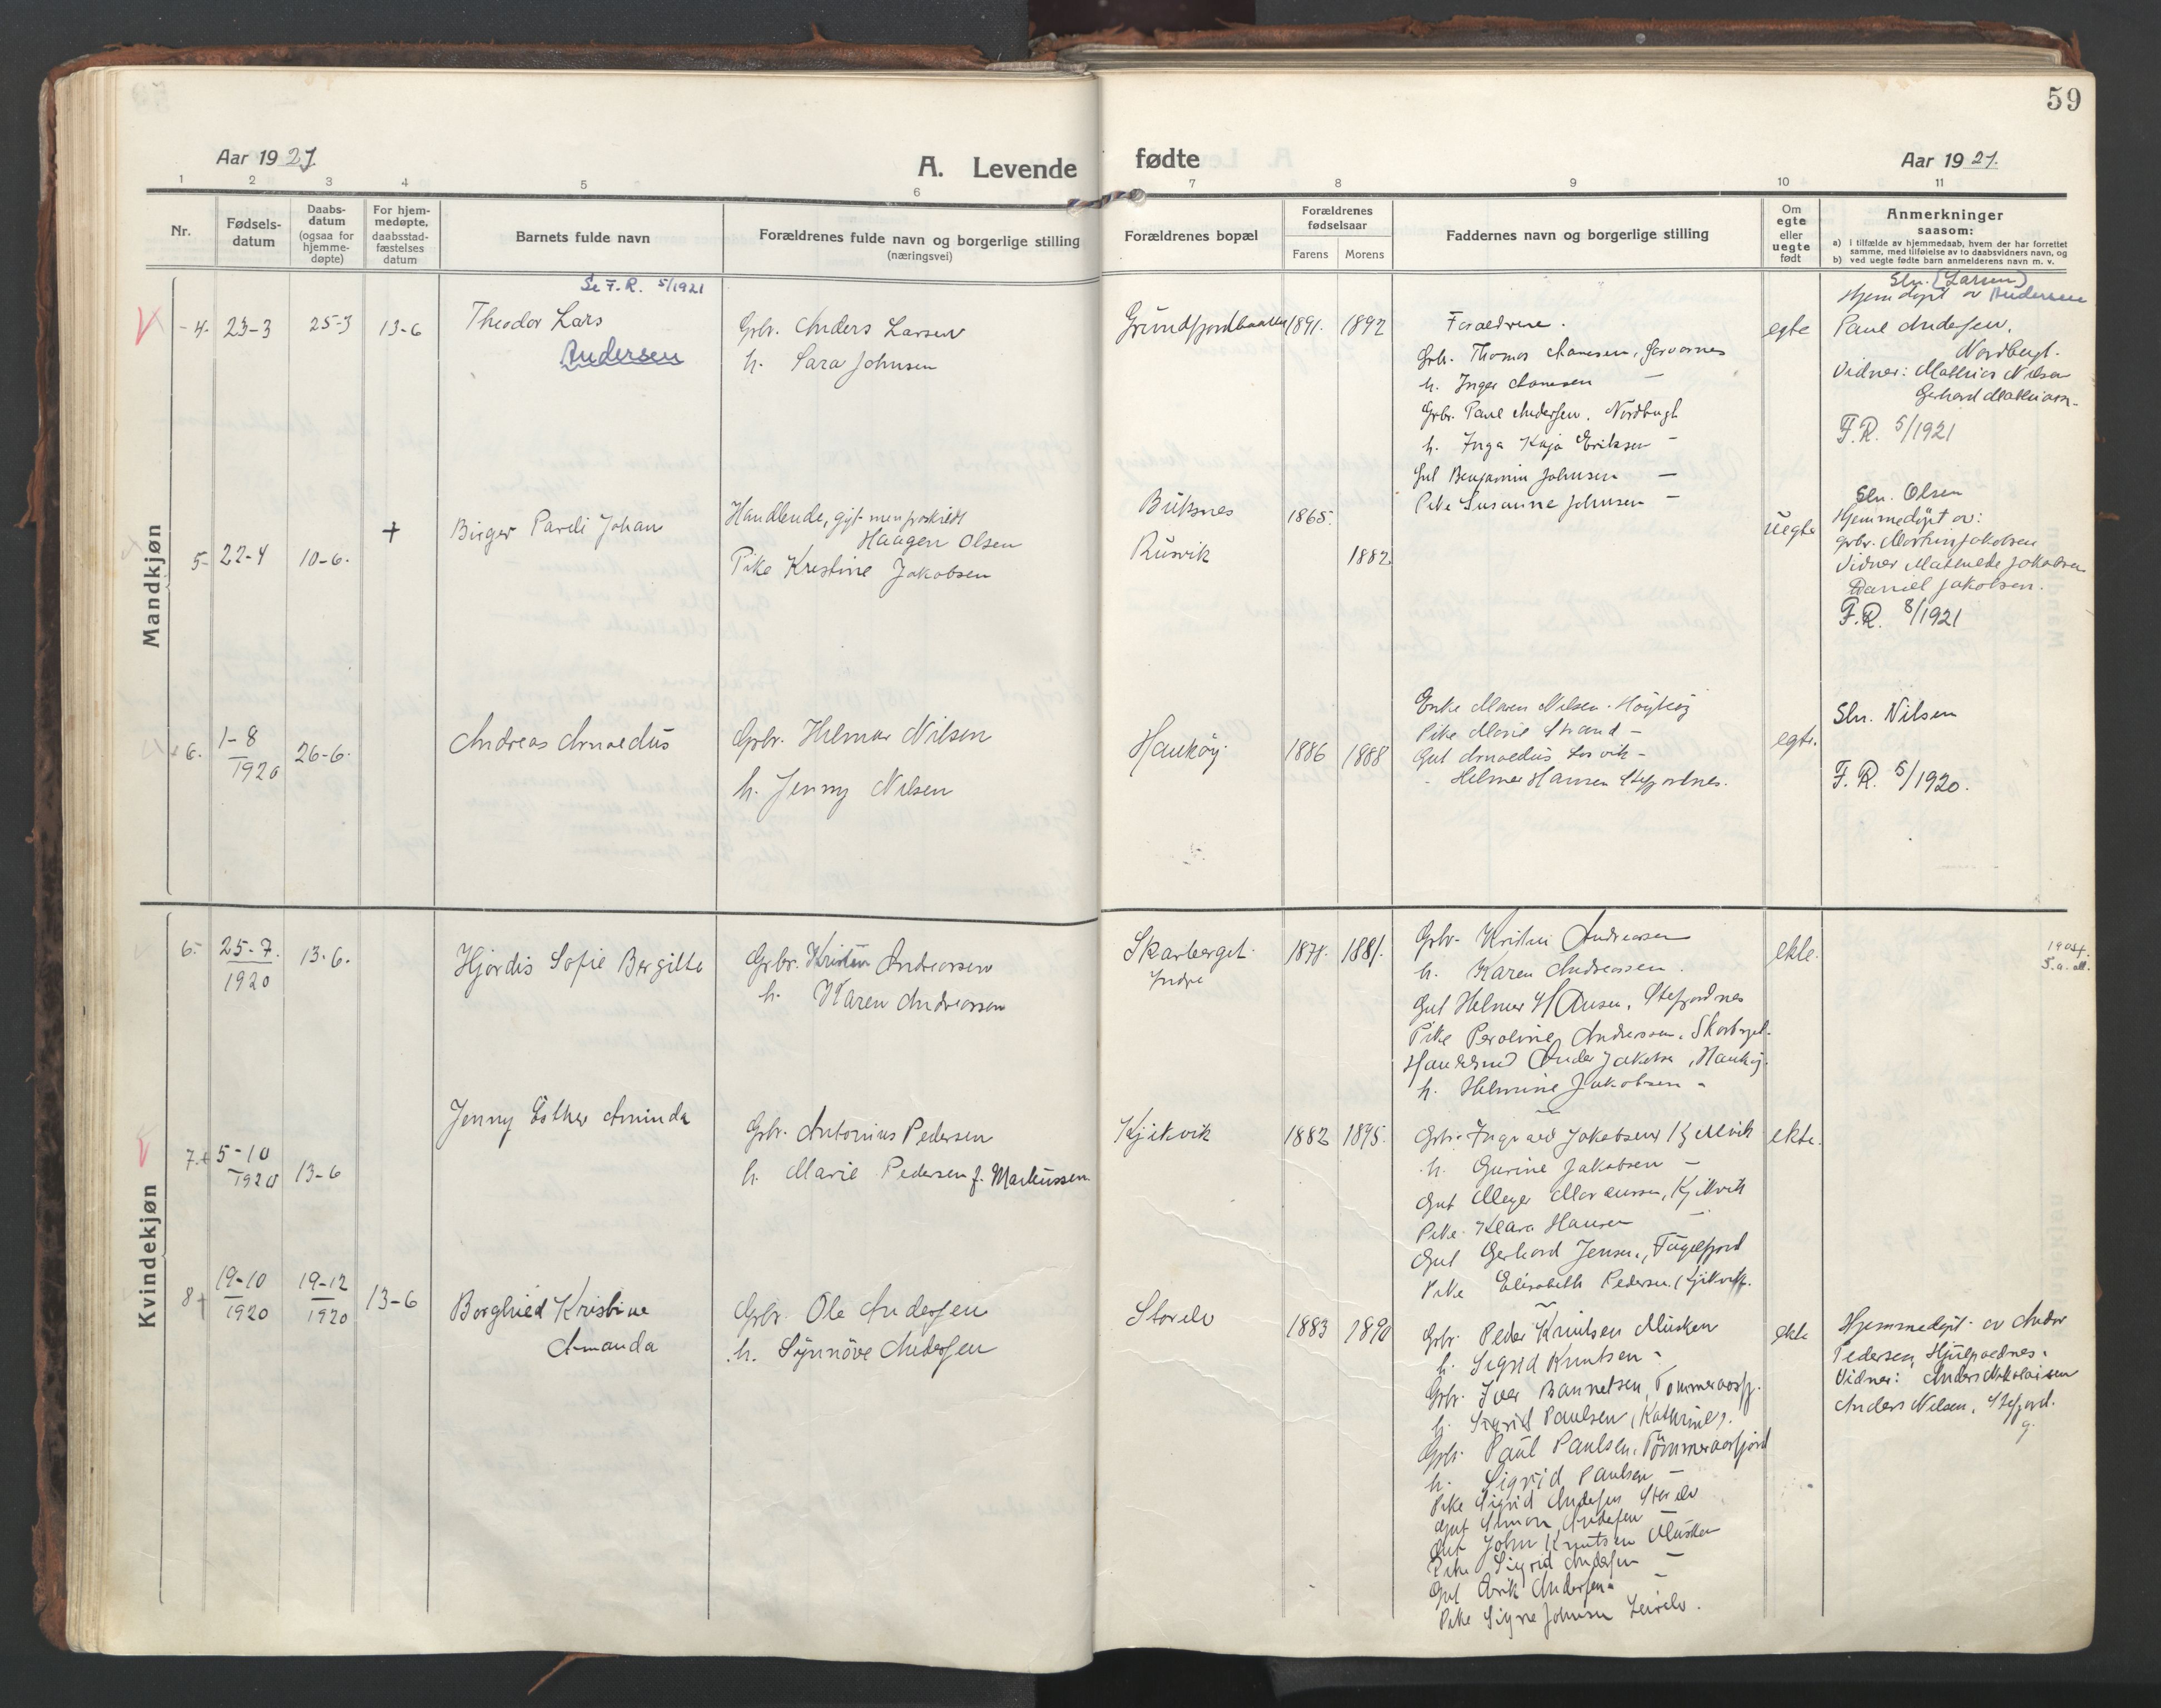 59
Aar 1921.
A. Levende
fødte
Aar 1921.
1 2 3 4 5 6 7 8 9 10 11
Nr.
Fødsels-
datum
Daabs-
datum
(ogsaa for
hjemme-
døpte)
For hjem-
medøpte,
daabsstad-
fæstelses
datum
Barnets fulde navn
Forældrenes fulde navn og borgerlige stilling
(næringsvei)
Forældrenes bopæl
Forældrenes
fødselsaar
Farens Morens
Faddernes navn og borgerlige stilling
Om
egte
eller
uegte
født
Anmerkninger
saasom:
a) I tilfælde av hjemmedaab, hvem der har forrettet
samme, med tilføielse av to daabsvidners navn, og
b) ved uegte fødte barn anmelderens navn m. v.
Mandkjøn
Se F.R. 5/1921
4. 23-3 25-3 13-6
Theodor Lars
Andersen
Grbr. Anders Larsen
h. Sara Johnsen
1891. 1892
Foraeldrene.
Grb. Thomas
h. Inger
Grbr. Paul Andersen, Nordbugt
h. Inga Kaja Eriksen -
Gut Benjamin Johnsen -
Pike Susanne Johnsen -
egte
Sln. (Larsen)
Hjemdöpt av Andersen
Paul Andersen,
Nordbugt.
Vidner: Mathias Nilsen
Gerhard
F.R. 5/1921
5- 22-4 10-6. +
Birger Pareli Johan
Handlende, gift men fraskildt
Haagen Olsen
Pike Kristine Jakobsen
Buksnes
Rusvik
1865.
1882
uegte
Sln. Olsen
Hjemmedöpt av:
grbr. Morten Jakobsen
Vidner Jakobsen
Daniel Jakobsen.
F.R. 8/1921
6. 1-8
1920
26-6.
Andreas Arnoldus
Grbr. Hilmar Nilsen
h. Jenny Nilsen
Haukøy.
1886 1888
Enke Maren Nilsen.
Pike Marie Strand -
Gut
- Helmer Hansen Stefjordnes.
egte.
Sln. Nilsen
F.R. 5/1920.
Kvindekjøn
6. 25-7.
1920
13-6.
Hjördis Sofie Bergitte
Grbr. Kristen Andreassen
h. Karen Andreassen
Skarberget.
Indre
1878. 1881.
Grbr. Andreassen
h. Karen Andreassen.
Gut Helmer Hansen, Stefjordnes
Pike Peroline Andreassen,
Jakobsen,
h. Helmine Jakobsen -
ekte.
7.+ 5-10
1920
13-6
Jenny Esther Aminda
Grbr. Antonius Pedersen
h. Marie Pedersen f. Markussen
Kjikvik
1882 1895.
Grbr. Ingvard Jakobsen
h. Gurine Jakobsen -
Gut Meyer Kjikvik
Pike Klara Hansen
Gut Gerhard Jensen, Fuglfjord
Pike Elisabeth Pedersen,
ekte.
8+ 19-10
1920
19-12
1920
13-6
Borghild Kristine
Amanda
Grbr. Ole Andersen
h. Synnöve Andersen
Storelv
1883 1890
Grbr. Peder Knutsen Musken
h. Sigrid Knutsen -
Grbr. Iver
h. Sigrid Paulsen (Kathrine).
Grbr. Paul Paulsen, Tömmeraasfjord
h. Sigrid Paulsen -
Pike Sigrid Andersen Storelv
Gut Simon Andersen
Gut John Knutsen Musken
Pike Sigrid Andersen -
Gut Erik Andersen -
Pike Signe Johnsen Leirelv.
ekte
Hjemmedöpt av Andor
Pedersen,
Vidner: Anders Nikolaisen
Anders Nilsen, Stefjord.